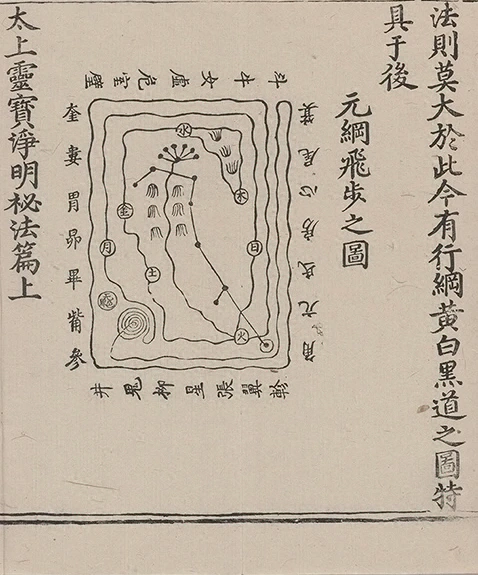 法則莫大於此今有行綱黃白黑道之圖特
具于後
元綱飛步之圖
箕尾心房氐亢角
斗牛女虛危室壁
水
木
金
日
月
土
火
奎婁胃昴畢觜參
井鬼柳星張翼軫
太上靈寶淨明祕法篇上